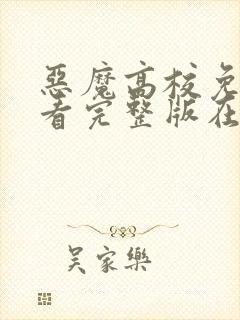 惡魔高校免
看完整版在
吴家樂